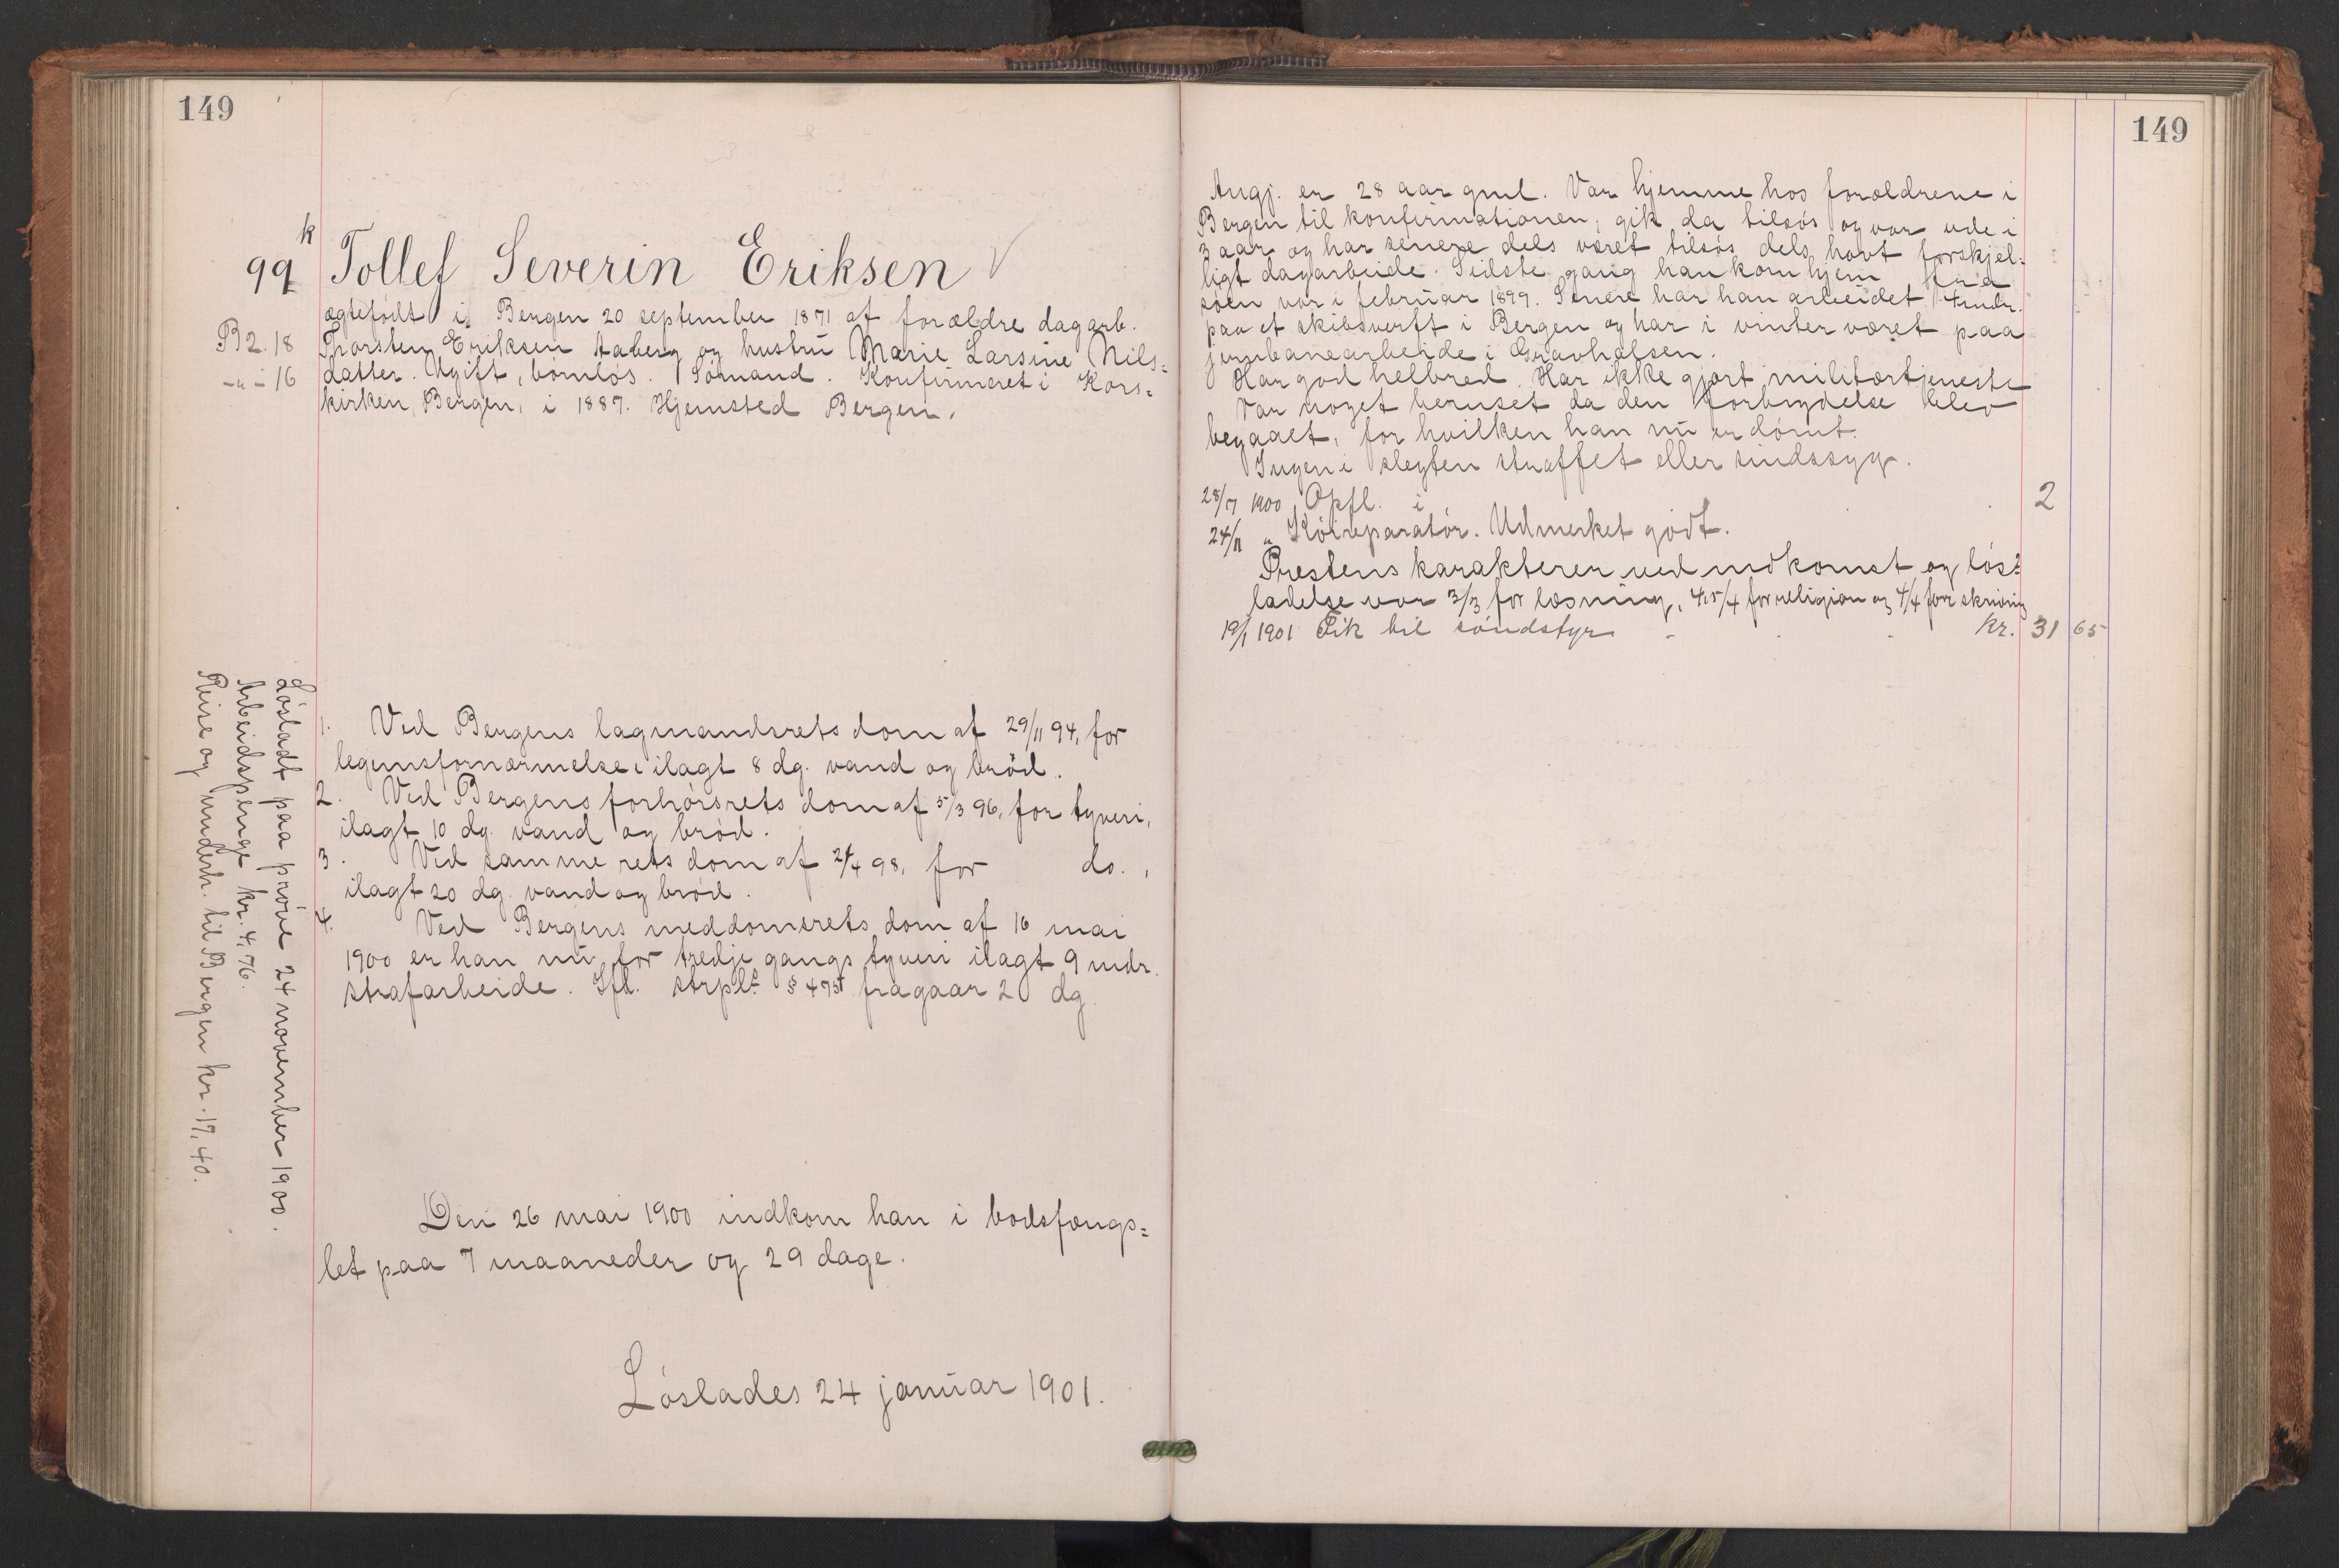 149
k
99 Tollef Severin Eriksen V
B2.18
-"- 16
ægtefødt i Bergen 20 september 1871 af forældre dagarb.
Thorsten Eriksen Aaberg og hustru Marie Larsine Nils=
datter. Ugift, børnløs. Sømand. Konfirmeret i Kors=
kirken, Bergen, i 1887. Hjemsted Bergen.
1. Ved Bergens lagmandsrets dom af 29/11 94, for
legemsfornærmelse ilagt 8 dg. vand og brød.
2. Ved Bergens forhørsrets dom af 5/3 96, for tyveri,
ilagt 10 dg. vand og brød.
3. Ved samme rets dom af 2/4 98, for do.,
ilagt 20 dg. vand og brød.
4. Ved Bergens meddomsrets dom af 16 mai
1900 er han nu for tredje gangs tyveri ilagt 9 mdr.
strafarbeide. Ifl. strpl. § 475 fragaar 2 dg.
Løsladt paa prøve 24 november 1900.
Arbeidspenge kr. 4,76.
Reise og underh. til Bergen kr. 17,40.
Den 26 mai 1900 indkom han i bodsfængs=
let paa 7 maaneder og 29 dage.
Løslades 24 januar 1901.
149
Angj. er 28 aar gml. Var hjemme hos forældrene i
Bergen til konfirmationen; gik da tilsøs og var ude i
3 aar og har senere dels været tilsøs dels havt forskjel=
ligt dagarbeide. Sidste gang han kom hjem fra
søen var i februar 1899. Senere har han arbeidet 4 mdr.
paa et skibsverft i Bergen og har i vinter været paa
jernbanearbeide i Gravhalsen.
Har god helbred. Har ikke gjort militærtjeneste
Var noget beruset da den forbrydelse blev
begaaet, for hvilken han nu er dømt.
Ingen i slegten straffet eller sindssyg.
28/7 1900 Opfl. i 2
24/11 " Køireparatør. Udmerket godt.
Prestens karakterer ved indkomst og løs=
ladelse var 3/3 for læsning, 4,5/4 for religion og 4/4 for skrivning
19/1 1901 Fik til søndstyr kr. 31 65